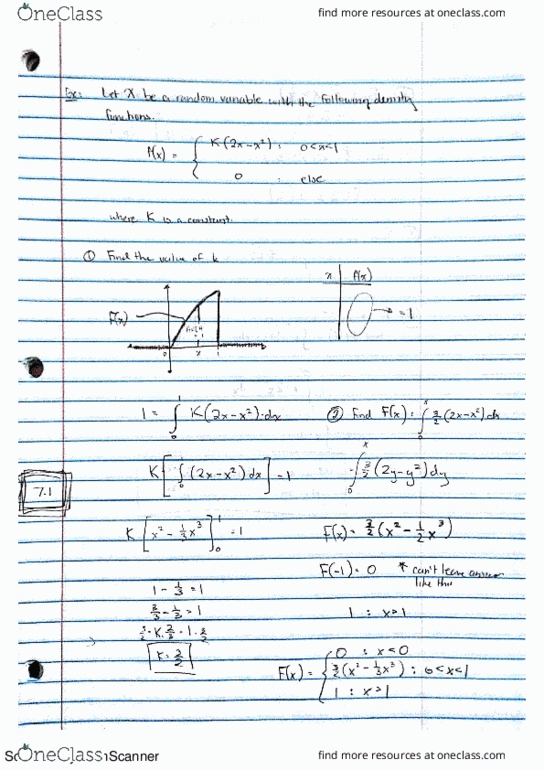 OneClass find more resources at oneclass.com
Ex: Let X be a random variable with the following density
functions.
f(x) = { K(2x-x²) : 0<x<1
0 : else
where K is a constant.
① Find the value of k
x | f(x)
f(x)
→ = 1
0 x 1
1 = ∫₀¹ K(2x-x²)·dx
② Find F(x) = ∫₀ˣ 3/2(2x-x²)dx
K[∫₀¹ (2x-x²)dx] = 1
∫₀ˣ 3/2(2y-y²)dy
7.1
K[x² - 1/3x³]₀¹ = 1
F(x) = 3/2(x² - 1/2x³)
F(-1) = 0 * can't leave answer
like this
1 - 1/3 = 1
1 : x>1
3/2·K·2/3 = 1·3/2
K = 3/2
F(x) = { 0 : x<0
3/2(x² - 1/3x³) : 0<x<1
1 : x>1
OneClass Scanner find more resources at oneclass.com